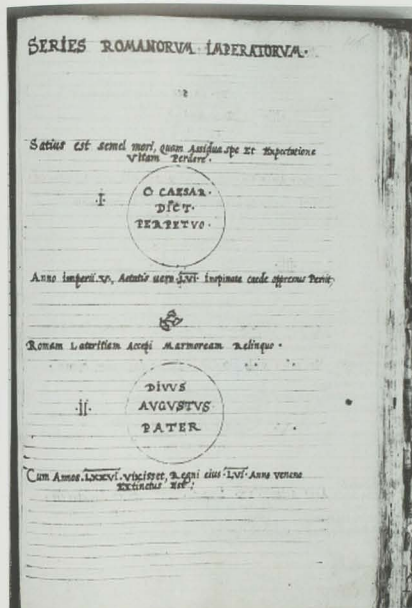 SERIES ROMANORVM IMPERATORVM.
Satius est semel mori, quam Assidua spe Et Expectatione
Vitam Perdere.
·I·
C CAESAR·
DICT·
PERPETVO·
Anno imperii ·V·, Aetatis uero ·LVI· inopinata caede oppressus Periit
Romam Lateritiam Accepi Marmoream Relinquo·
·II·
DIVVS
AVGVSTVS
PATER
Cum Annos ·LXXVI· Vixisset, Regni eius ·LVI· Anno veneno
Extinctus Est;